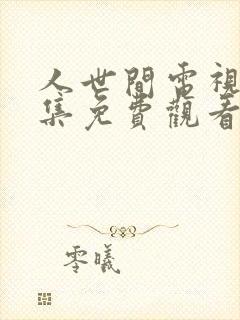 人世間電視
集免費觀看
零曦